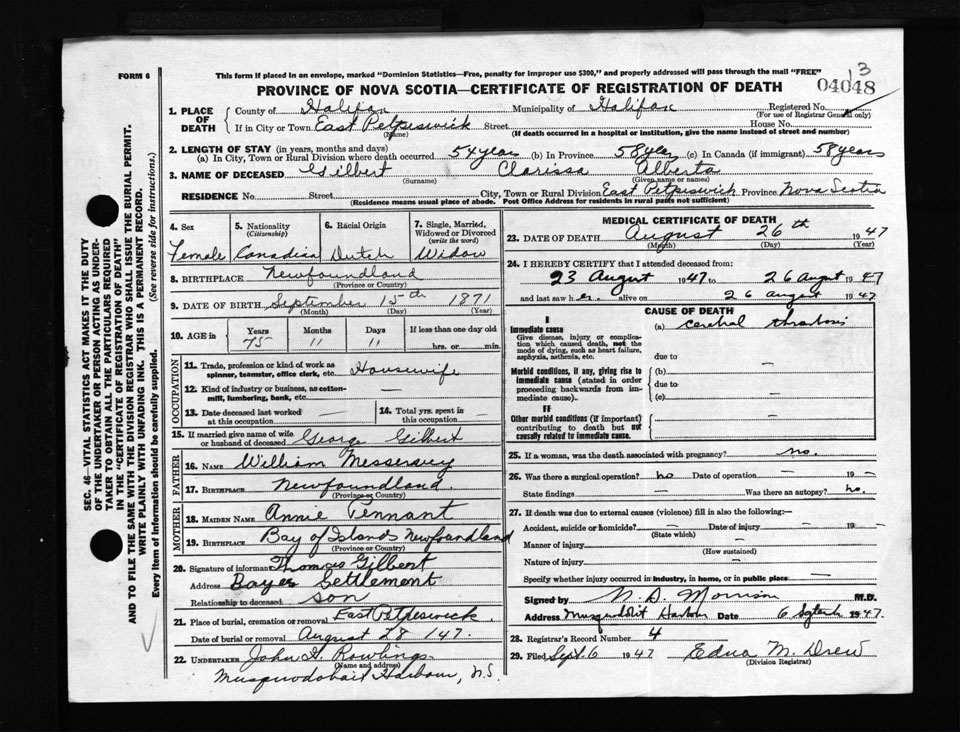 FORM 6
This form if placed in an envelope, marked "Dominion Statistics—Free, penalty for improper use $300," and properly addressed will pass through the mail "FREE"
13
PROVINCE OF NOVA SCOTIA—CERTIFICATE OF REGISTRATION OF DEATH
04048
1. PLACE OF DEATH
County of Halifax Municipality of Halifax Registered No.
(For use of Registrar General only)
If in City or Town East Petpeswick Street House No.
(Name) (If death occurred in a hospital or institution, give the name instead of street and number)
2. LENGTH OF STAY (in years, months and days)
(a) In City, Town or Rural Division where death occurred 54 years (b) In Province 58 years (c) In Canada (if immigrant) 58 years
3. NAME OF DECEASED Gilbert Clarissa Alberta
(Surname) (Given name or names)
RESIDENCE No. Street City, Town or Rural Division East Petpeswick Province Nova Scotia
(Residence means usual place of abode. Post Office Address for residents in rural parts not sufficient)
4. Sex
Female
5. Nationality
(Citizenship)
Canadian
6. Racial Origin
Dutch
7. Single, Married, Widowed or Divorced
(write the word)
Widow
8. BIRTHPLACE Newfoundland
(Province or Country)
9. DATE OF BIRTH September 15th 1871
(Month) (Day) (Year)
10. AGE in
Years Months Days If less than one day old
75 11 11 hrs. or min.
OCCUPATION
11. Trade, profession or kind of work as spinner, teamster, office clerk, etc. Housewife
12. Kind of industry or business, as cotton-mill, lumbering, bank, etc. —
13. Date deceased last worked at this occupation —
14. Total yrs. spent in this occupation —
15. If married give name of wife or husband of deceased George Gilbert
FATHER
16. NAME William Messervey
17. BIRTHPLACE Newfoundland
(Province or Country)
MOTHER
18. MAIDEN NAME Annie Tennant
19. BIRTHPLACE Bay of Islands Newfoundland
(Province or Country)
20. Signature of informant Thomas Gilbert
Address Bayer Settlement
Relationship to deceased son
21. Place of burial, cremation or removal East Petpeswick
Date of burial or removal August 28 147.
22. UNDERTAKER John H. Rowlings
(Name and address)
Musquodoboit Harbour, N.S.
MEDICAL CERTIFICATE OF DEATH
23. DATE OF DEATH August 26th 1947
(Month) (Day) (Year)
24. I HEREBY CERTIFY that I attended deceased from:
23 August 1947 to 26 August 1947
and last saw her alive on 26 August 1947
CAUSE OF DEATH
I
Immediate cause
Give disease, injury or complication which caused death, not the mode of dying, such as heart failure, asphyxia, asthenia, etc.
(a) Cerebral thrombosis
due to
Morbid conditions, if any, giving rise to immediate cause (stated in order proceeding backwards from immediate cause).
(b) —
due to
(c) —
II
Other morbid conditions (if important) contributing to death but not causally related to immediate cause.
—
25. If a woman, was the death associated with pregnancy? no.
26. Was there a surgical operation? no Date of operation — 19 —
State findings — Was there an autopsy? no.
27. If death was due to external causes (violence) fill in also the following:—
Accident, suicide or homicide? — Date of injury — 19 —
(State which)
Manner of injury —
(How sustained)
Nature of injury —
Specify whether injury occurred in industry, in home, or in public place —
Signed by N. D. Morrison M.D.
Address Musquodoboit Harbour Date 6 Septemb 1947.
28. Registrar's Record Number 4
29. Filed Sept. 6 1947 Edna M. Drew
(Division Registrar)
SEC. 46—VITAL STATISTICS ACT MAKES IT THE DUTY
OF THE UNDERTAKER OR PERSON ACTING AS UNDER-
TAKER TO OBTAIN ALL THE PARTICULARS REQUIRED
IN THE "CERTIFICATE OF REGISTRATION OF DEATH"
AND TO FILE THE SAME WITH THE DIVISION REGISTRAR WHO SHALL ISSUE THE BURIAL PERMIT.
WRITE PLAINLY WITH UNFADING INK. THIS IS A PERMANENT RECORD.
Every item of information should be carefully supplied. (See reverse side for instructions.)